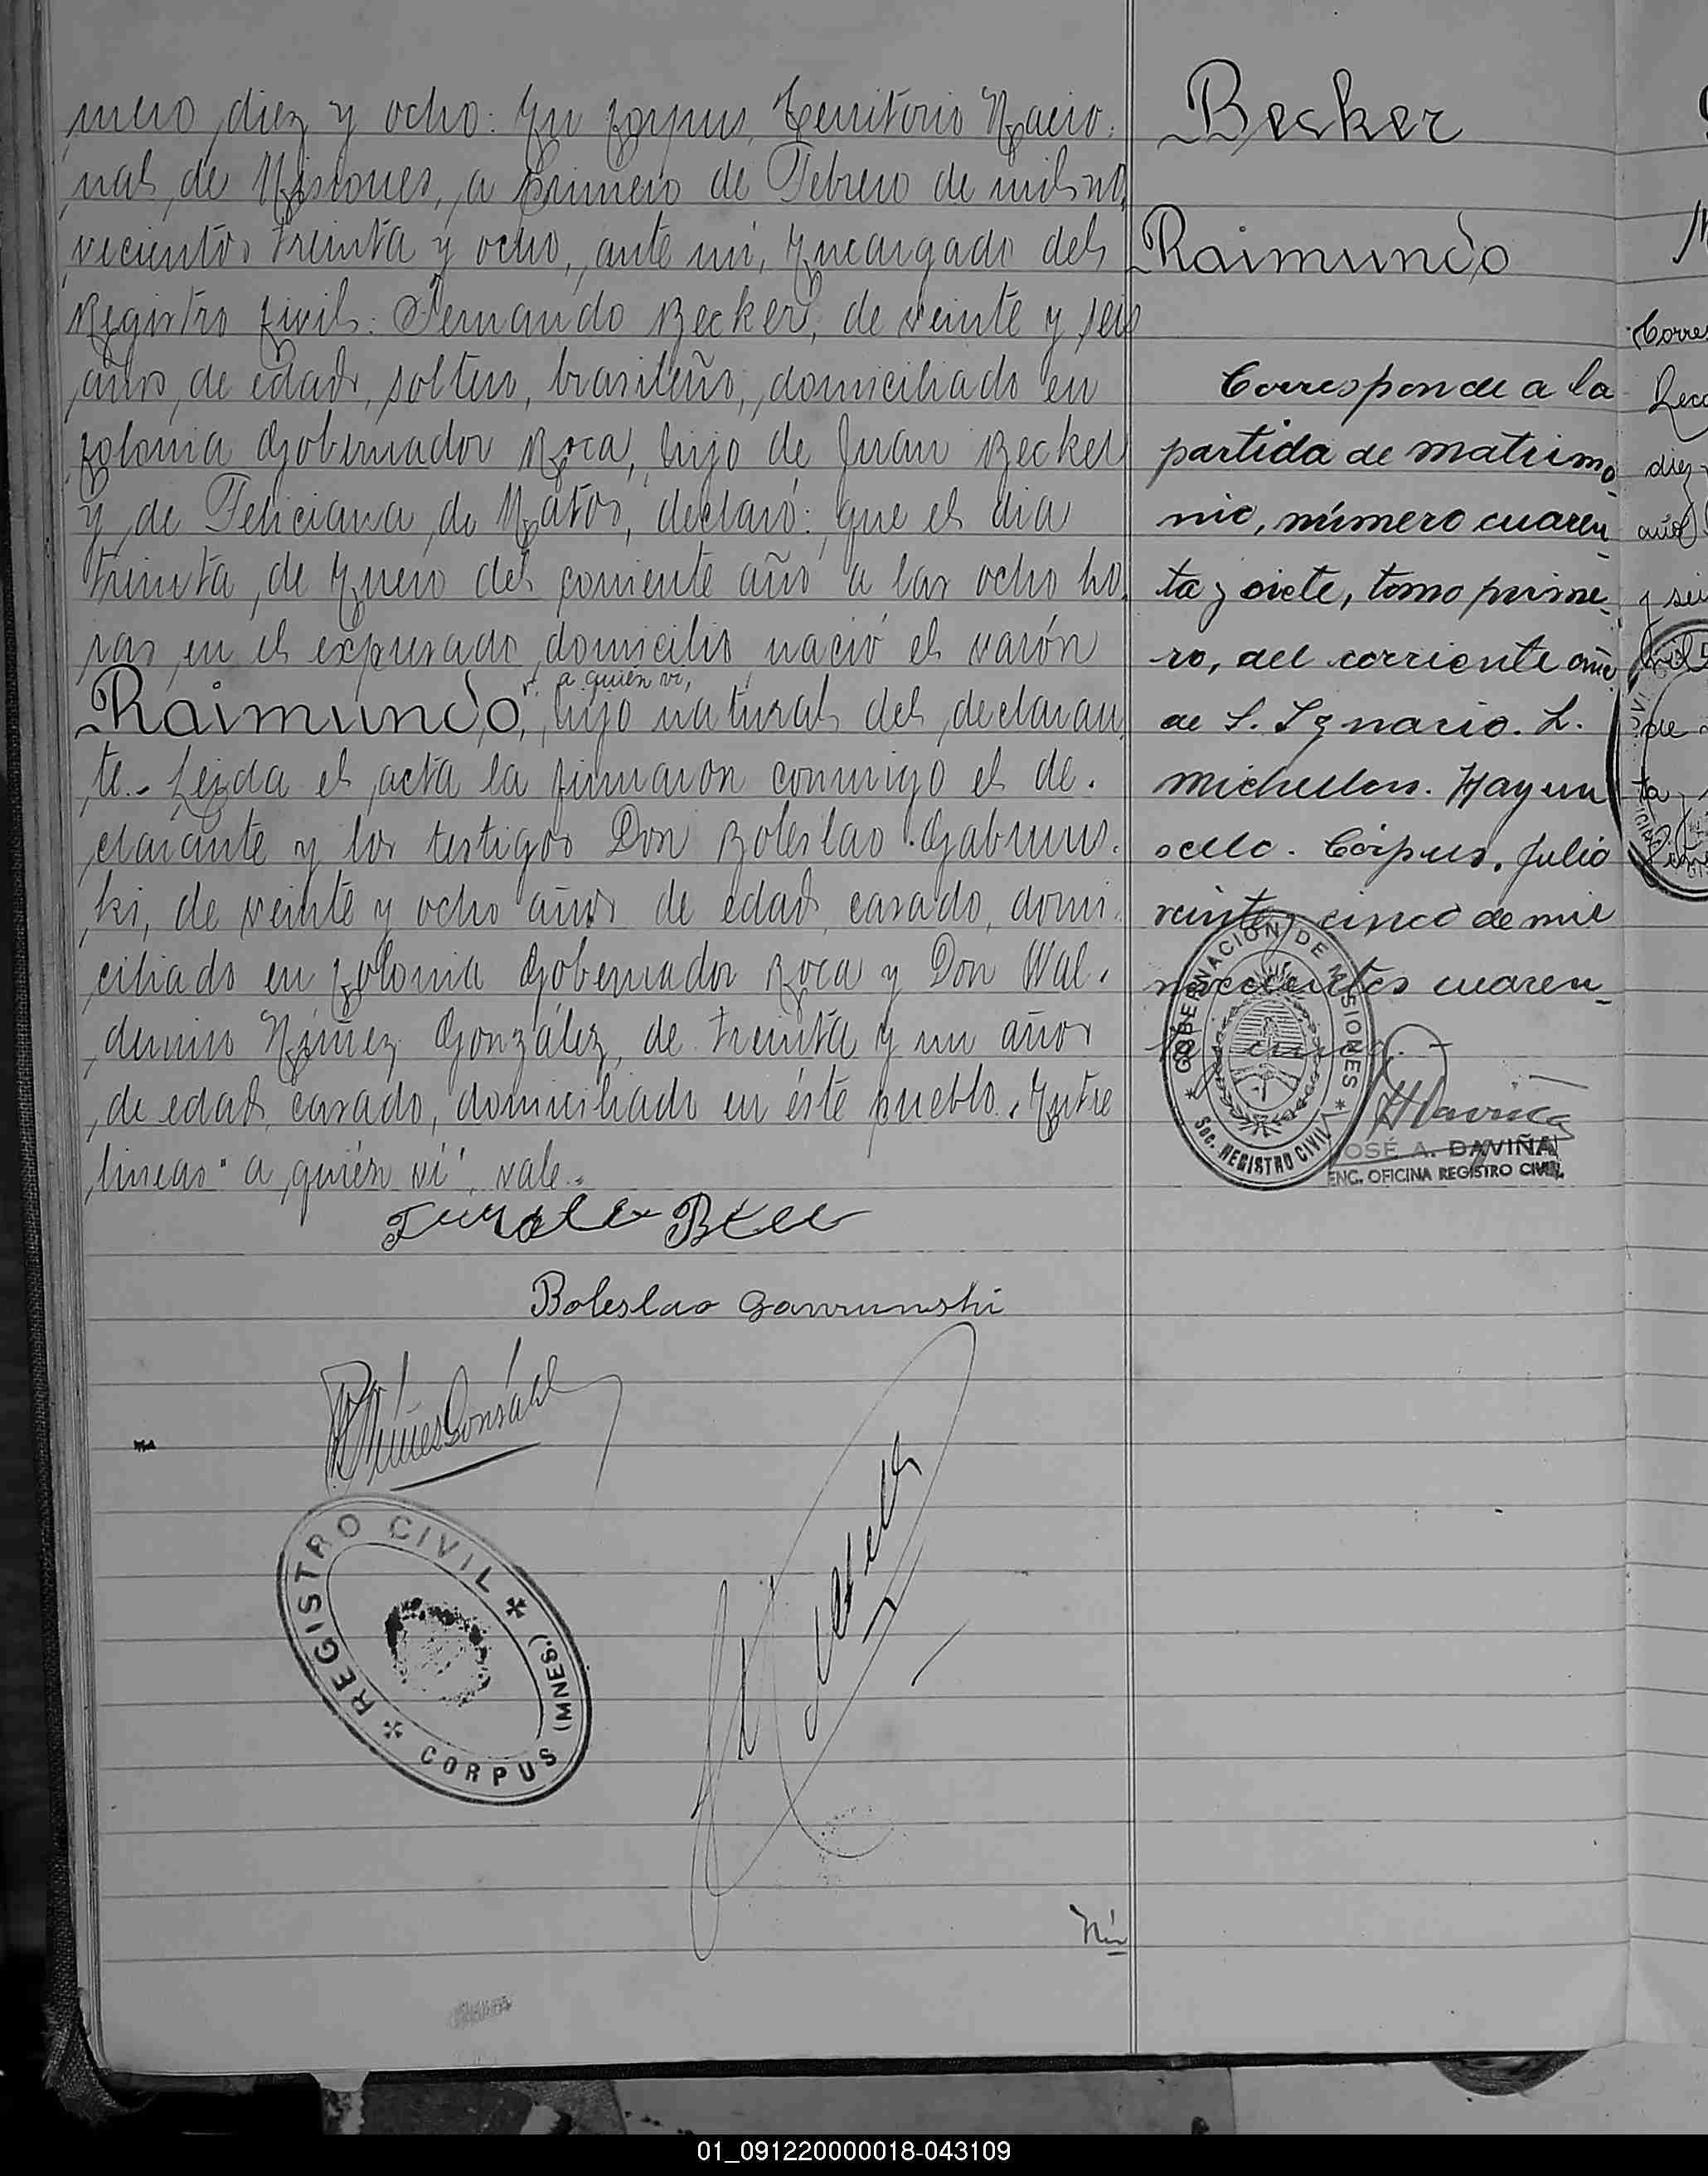 mero diez y ocho: En Corpus, Territorio Nacio-
nal de Misiones, a Primero de Febrero de mil no-
vecientos treinta y ocho, ante mí, Encargado del
Registro Civil: Fernando Becker, de veinte y seis
años de edad, soltero, brasileño, domiciliado en
Colonia Gobernador Roca, hijo de Juan Becker
y de Feliciana de Mátos, declaró: que el dia
treinta de Enero del corriente año a las ocho ho-
ras en el expresado domicilio nació el varón
a quién ví,
Raimundo, hijo natural del declaran-
te.- Leida el acta la firmaron conmigo el de-
clarante y los testigos Don Boleslao Gabruns-
ki, de veinte y ocho años de edad, casado, domi-
ciliado en Colonia Gobernador Roca y Don Wal-
dimiro Núñez González, de treinta y un años
de edad, casado, domiciliado en éste pueblo. Entre
lineas "a quién ví", vale.-
Boleslao Gawrunski
Núñes Gonsález
* REGISTRO CIVIL *
CORPUS (MNES.)
Nú
Becker
Raimundo
Corresponde a la
partida de matrimo-
nio, número cuaren-
ta y siete, tomo prime-
ro, del corriente año
de S. Ignacio. L.
Michellon. Hay un
sello. Córpus, Julio
veinte y cinco de mil
novecientos cuaren-
ta y cinco.-
GOBERNACIÓN DE MISIONES
* Sec. REGISTRO CIVIL *
JOSÉ A. DAVIÑA
ENC. OFICINA REGISTRO CIVIL
Corres
diez
año
y sei
mil
de
ta
01_091220000018-043109